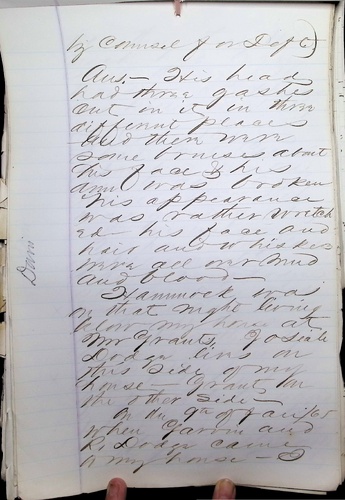 by Counsel for Deft)
Ans.— His head
had three gashes
cut on it in three
different places
and then were
some bruises about
his face & his
arm was broken
his appearance
was rather wretch
ed— his face and
hair and whiskers
were all over mud
and blood—
Hammock was
on that night living
below my house at
Mr Grants. Josiah
Dodge lives on
this side of my
house— Grant, on
the other side—
On the 9th of
when and
R. Dodge came
to my house—